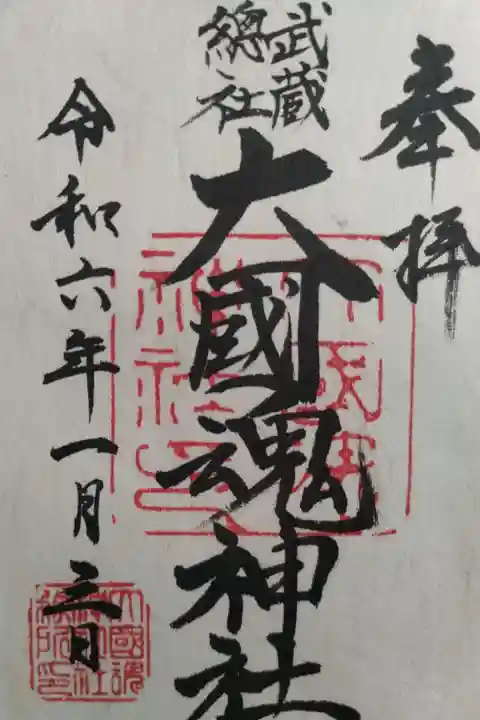 奉拝
武蔵
總社
大國魂神社
令和六年一月三日